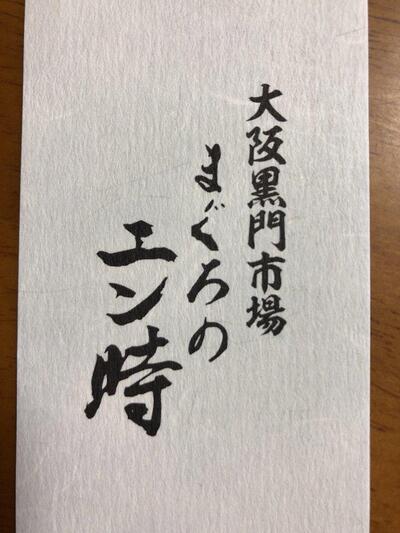 大阪黒門市場
まぐろの
エン時